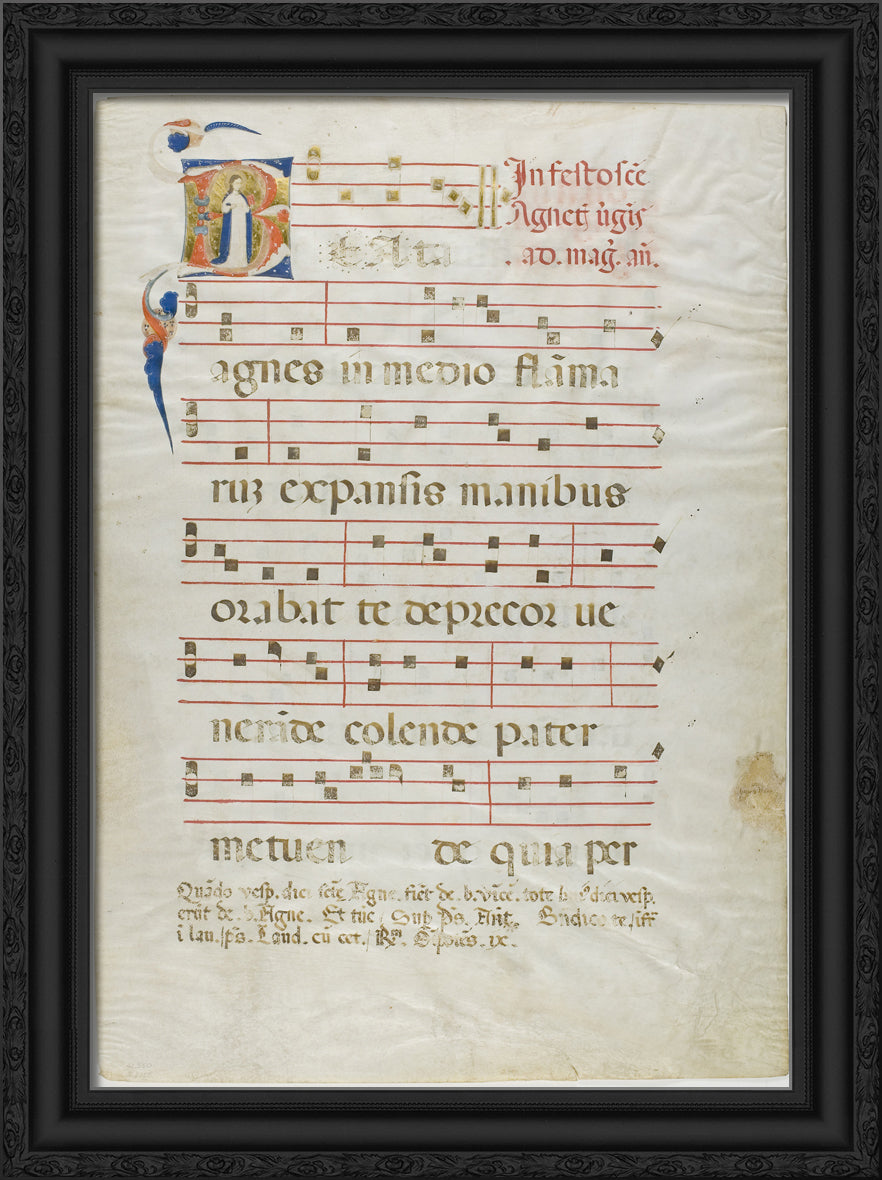 In festo sc̄e
Agnet᷒ ūgīs
. ad. mag̃. añ.
BEAta
agnes in medio flãma
ruȝ expansis manibus
orabat te deprecor ue
nerãde colende pater
metuen de quia per
Quãdo vesp. diei scīe Agne. fiēt de. b. vīcē. tote
erũt de. b. Agne. Et tūc Ant̃. Bñdico te
ĩ lau. p̄s. Laud. cũ cet.